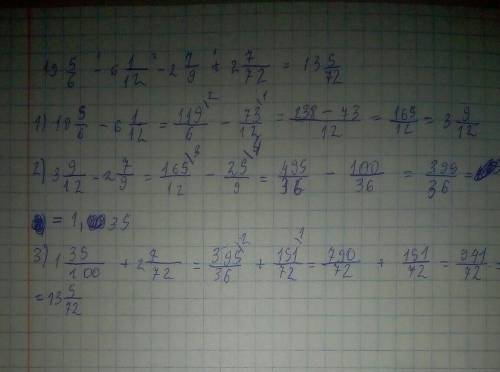 19 5/6 - 6 1/12 - 2 7/9 + 2 7/72 = 13 5/72
1) 18 5/6 - 6 1/12 = 119/6 - 73/12 = 238 - 73/12 = 165/12 = 3 9/12
2) 3 9/12 - 2 7/9 = 165/12 - 25/9 = 495/36 - 100/36 = 395/36 =
= 1, 35
3) 1 35/100 + 2 7/72 = 395/36 + 151/72 = 790/72 + 151/72 = 941/72 =
= 13 5/72